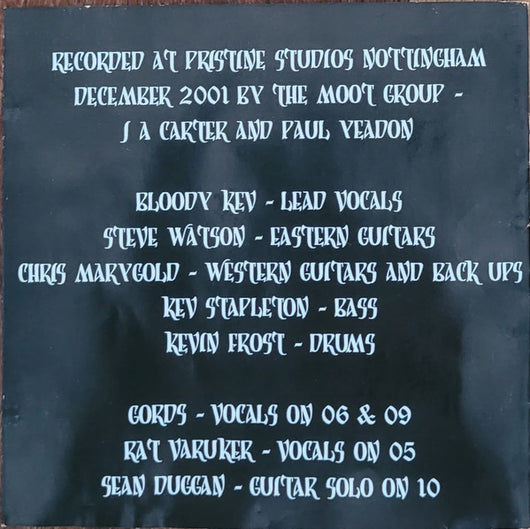 RECORDED AT PRISTINE STUDIOS NOTTINGHAM
DECEMBER 2001 BY THE MOOT GROUP -
J A CARTER AND PAUL YEADON
BLOODY KEV - LEAD VOCALS
STEVE WATSON - EASTERN GUITARS
CHRIS MARYGOLD - WESTERN GUITARS AND BACK UPS
KEV STAPLETON - BASS
KEVIN FROST - DRUMS
GORDS - VOCALS ON 06 & 09
RAT VARUKER - VOCALS ON 05
SEAN DUGGAN - GUITAR SOLO ON 10